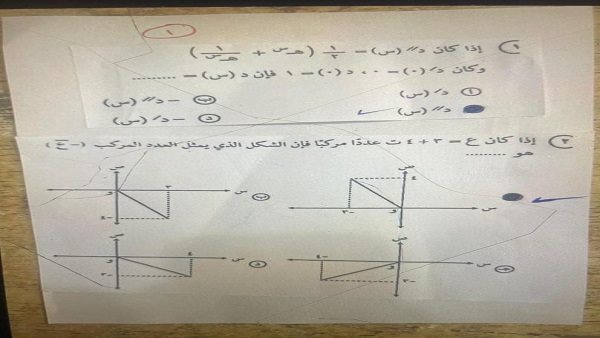 ١
١ إذا كان د″(س) = ١/٢ (هـس + ١/هـس)
وكان د′(٠) = ٠، د(٠) = ١ فإن د(س) = ..........
أ د′(س) ب − د″(س)
د″(س) د − د′(س)
٢ إذا كان ع = ٣ + ٤ ت عددًا مركبًا فإن الشكل الذي يمثل العدد المركب (− ع̅)
هو ..........
ص ٤ س و ٣−
ب ص ٣ س و ٤−
جـ ص ٤− س و ٣−
د ص ٤ س و ٣−